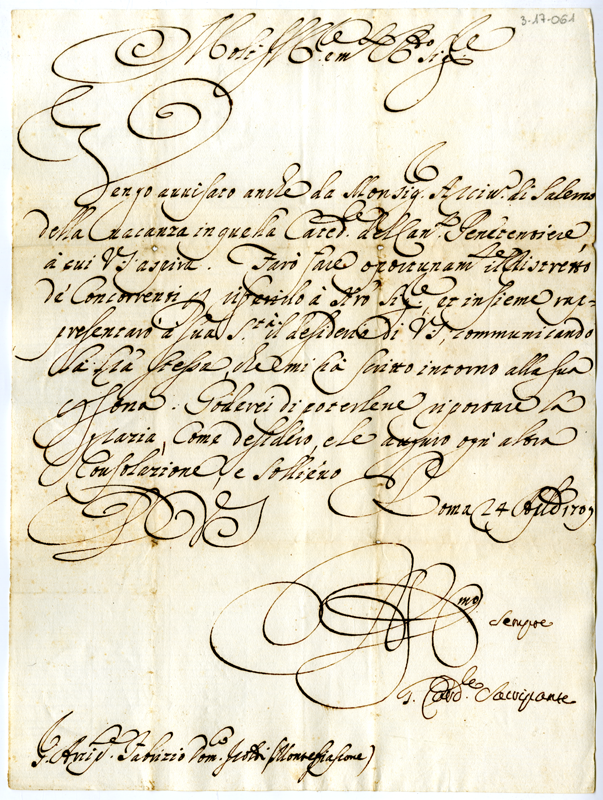 3-17-061
Molt' Ill.re e m.to R.do Sig.re
Vengo avvisato anche da Monsig.r Arciv.o di Salerno
della vacanza in quella Cated.le del Can.to Penitenziere
à cui VS aspira. Farò fare oportunam.te il Distretto
de' Concorrenti, p riferirlo à Nro Sig.re, et insieme rap-
presentarò à Sua S.tà il desiderio di VS, communicando
la stessa, che mi hà scritto intorno alla sua
persona. Goderei di poterlene riportare la
grazia, come desidero, e le auguro ogn' altra
Consolazione, e sollievo Roma 24 Aple 1709
D VS
Aff.mo sempre
G. Card.le Sacripante
S. Arcid. Fabrizio Dom. (Montefiascone)